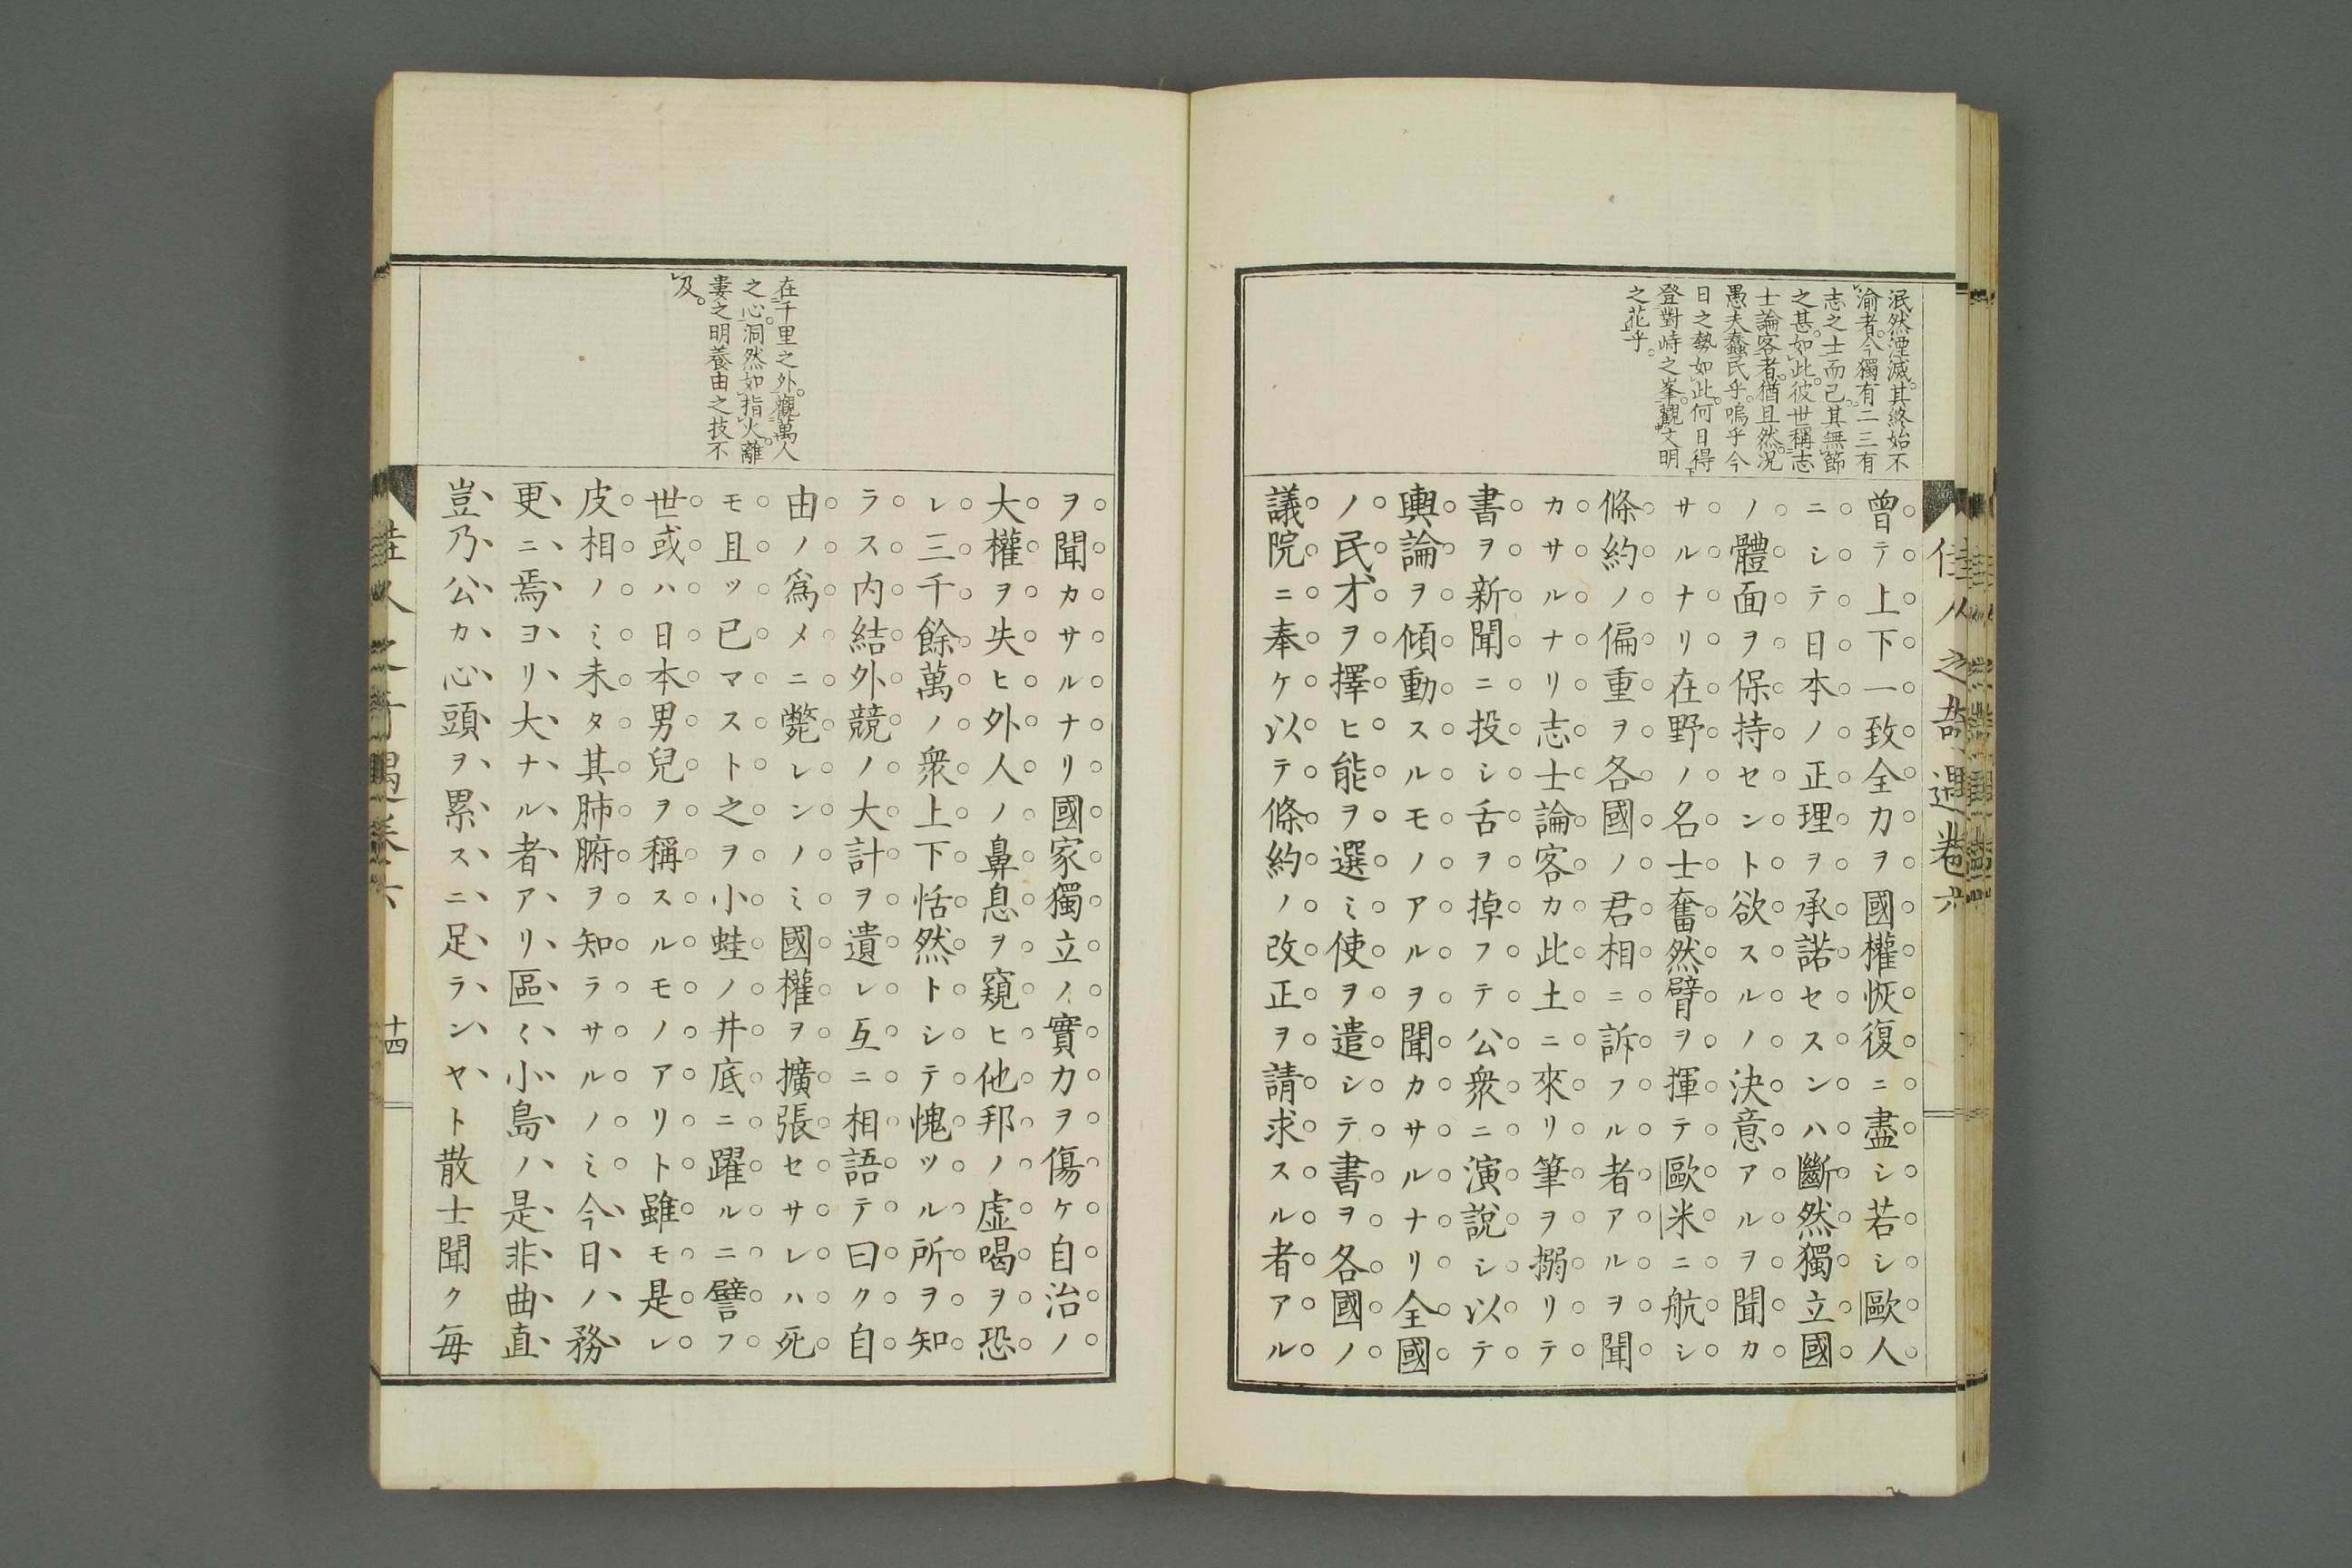 泯然湮滅。其終始不
渝者。今獨有二三有
志之士而已。其無節
之甚。如此。彼世稱志
士論客者。猶且然。況
愚夫蠢民乎。嗚乎今
日之勢如此。何日得
登對峙之峯。觀文明
之花乎。
佳人之奇遇卷六
曾テ上下一致全力ヲ國權恢復ニ盡シ若シ歐人
ニシテ日本ノ正理ヲ承諾セスンハ斷然獨立國
ノ體面ヲ保持セント欲スルノ決意アルヲ聞カ
サルナリ在野ノ名士奮然臂ヲ揮テ歐米ニ航シ
條約ノ偏重ヲ各國ノ君相ニ訴フル者アルヲ聞
カサルナリ志士論客カ此土ニ來リ筆ヲ搦リテ
書ヲ新聞ニ投シ舌ヲ掉フテ公衆ニ演說シ以テ
輿論ヲ傾動スルモノアルヲ聞カサルナリ全國
ノ民才ヲ擇ヒ能ヲ選ミ使ヲ遣シテ書ヲ各國ノ
議院ニ奉ケ以テ條約ノ改正ヲ請求スル者アル
在千里之外。觀萬人
之心。洞然如指火。離
婁之明養由之技不
及。
ヲ聞カサルナリ國家獨立ノ實力ヲ傷ケ自治ノ
大權ヲ失ヒ外人ノ鼻息ヲ窺ヒ他邦ノ虛喝ヲ恐
レ三千餘萬ノ衆上下恬然トシテ愧ツル所ヲ知
ラス内結外競ノ大計ヲ遺レ互ニ相語テ曰ク自
由ノ爲メニ斃レンノミ國權ヲ擴張セサレハ死
モ且ツ已マスト之ヲ小蛙ノ井底ニ躍ルニ譬フ
世或ハ日本男兒ヲ稱スルモノアリト雖モ是レ
皮相ノミ未タ其肺腑ヲ知ラサルノミ今日ノ務
更ニ焉ヨリ大ナル者アリ區〻小島ノ是非曲直
豈乃公カ心頭ヲ累スニ足ランヤト散士聞ク毎
佳人之奇遇卷六
十四